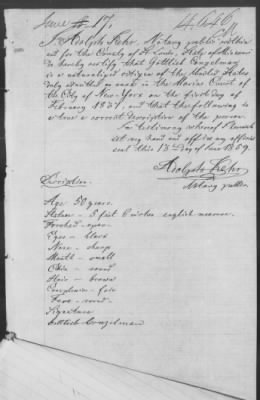 June 17. 4.646/
I Adolph Kehr, Notary public within
and for the County of St. Louis, State of Missouri
do hereby certify that Gottlieb Conzelman
is a naturalized citizen of the United States
duly admitted as such in the Marine Court of
the City of New-York on the first day of
February 1837, and that the following is
a true & correct description of the person.
In testimony whereof I herewith
set my hand and official
seal this 13 Day of June 1859.
Adolph Kehr
Notary public.
Description.
Age 50 years.
Stature - 5 feet 6 inches english measure.
Forehead - open
Eyes - black
Nose - sharp
Mouth - small
Chin - round
Hair - brown
Complexion - fair
Face - round.
Signature
Gottlieb Conzelman